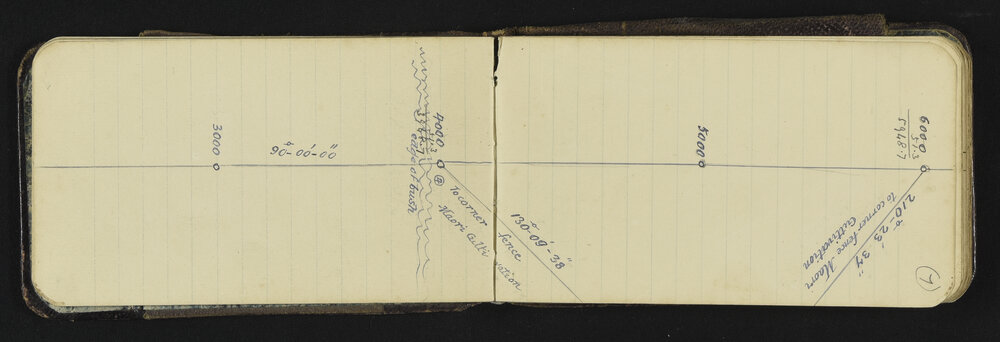 3000
90°-00'-00"
4000
51.3
3948.7
edge of bush
⊕
To corner fence
Maori Cultivation
130°-09'-38"
5000
6000
51.3
5948.7
210°-23' 37"
to corner fence Maori
Cultivation